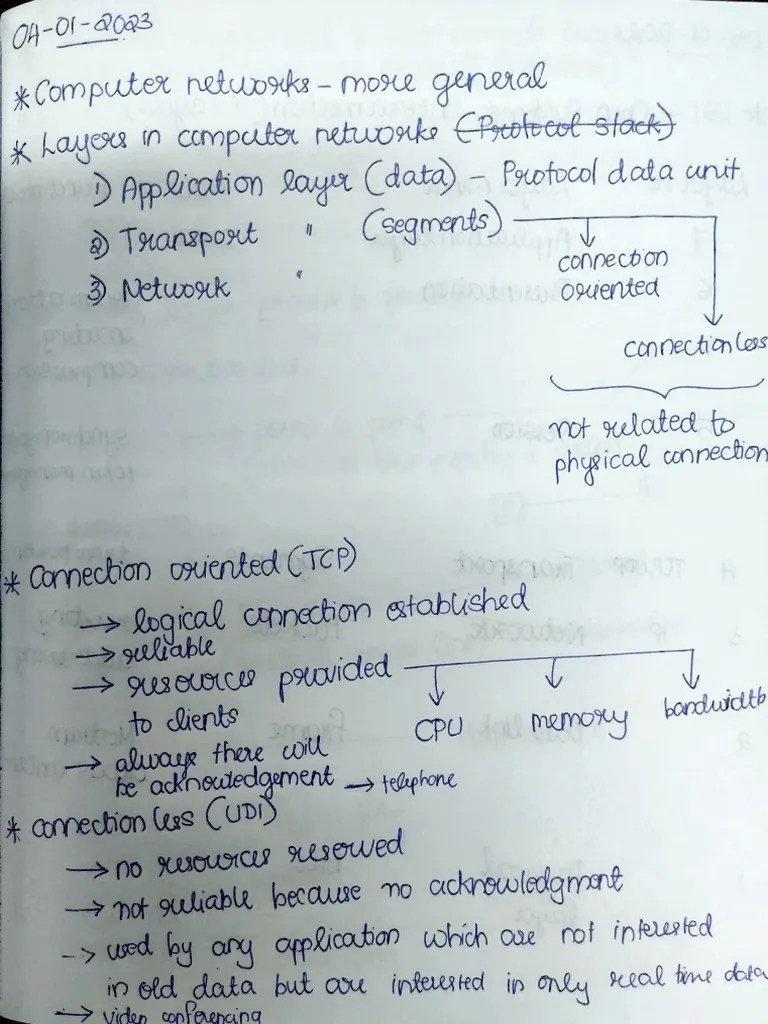 04-01-2023
* Computer networks - more general
* Layers in computer networks (Protocol Stack)
1) Application layer (data) - Protocol data unit
2) Transport " (segments)
connection
oriented
3) Network "
connectionless
not related to
physical connection
* Connection oriented (TCP)
→ logical connection established
→ reliable
→ resources provided
to clients
CPU memory bandwidth
→ always there will
be acknowledgement → telephone
* connection less (UDI)
→ no resources reserved
→ not reliable because no acknowledgment
-> used by any application which are not interested
in old data but are interested in only real time data
→ video conferencing